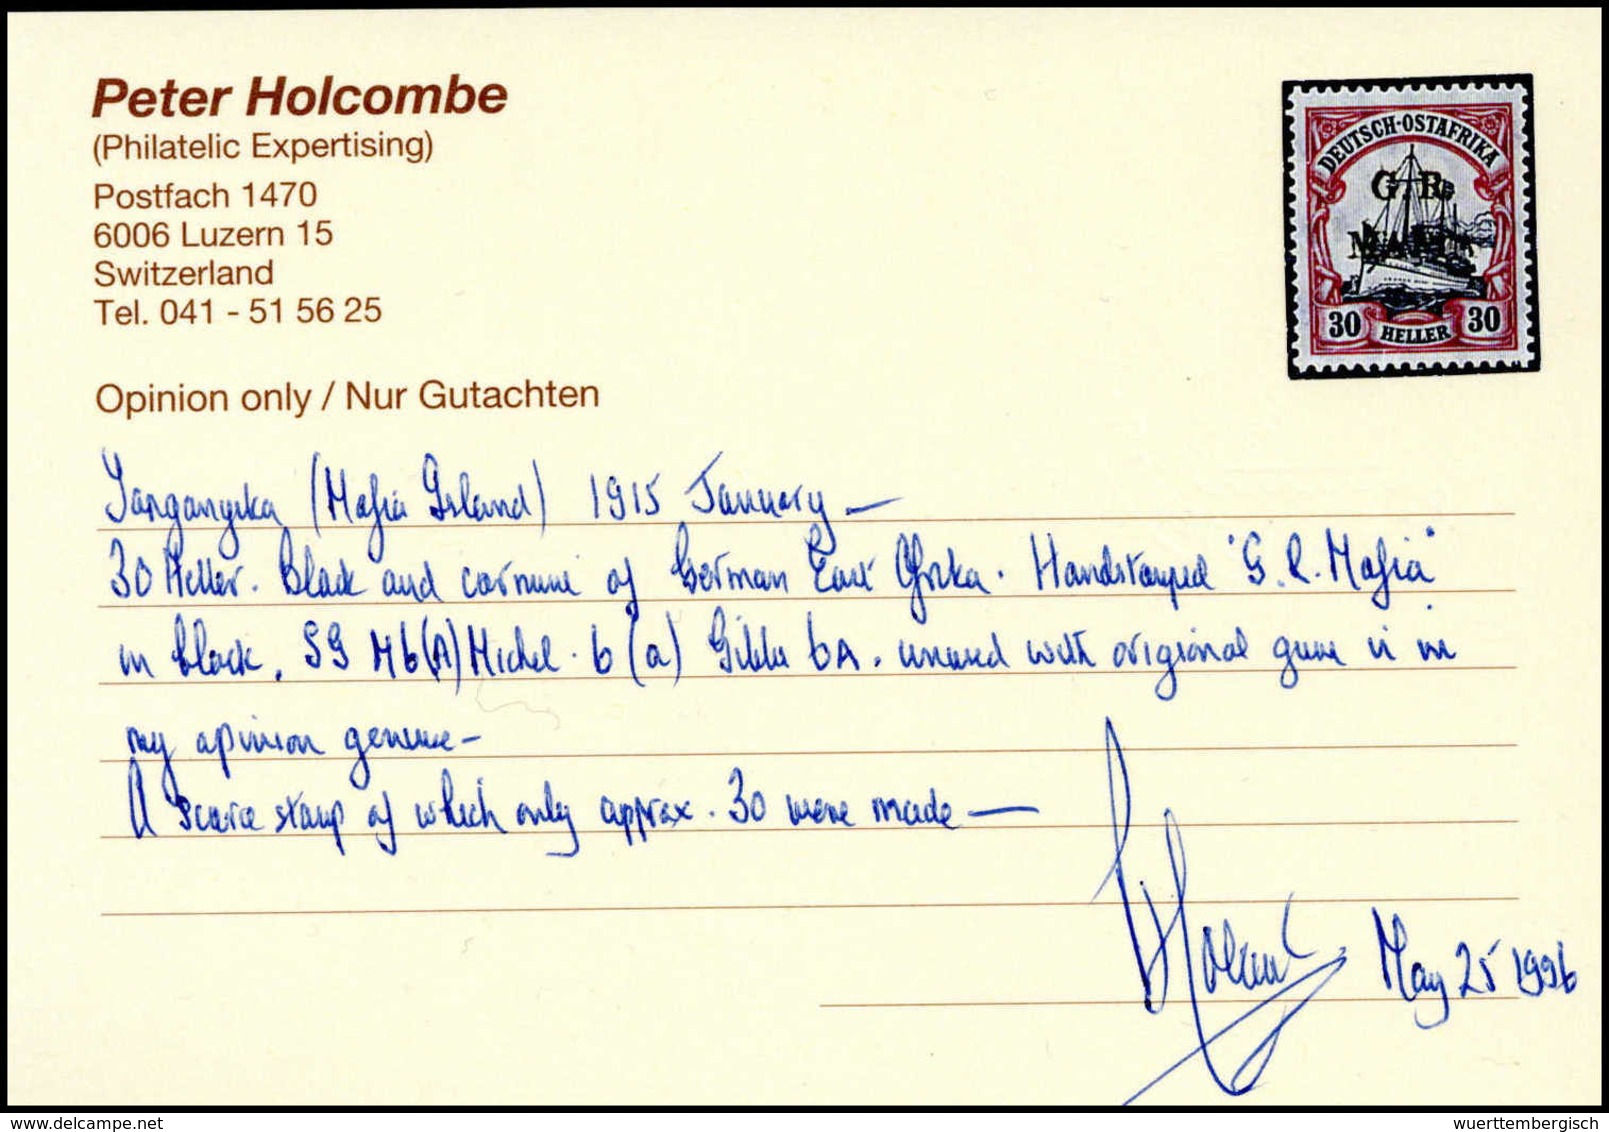 Peter Holcombe
(Philatelic Expertising)
Postfach 1470
6006 Luzern 15
Switzerland
Tel. 041 - 51 56 25
Opinion only / Nur Gutachten
DEUTSCH-OSTAFRIKA
G. R.
MAFIA
30 HELLER 30
Tanganyika (Mafia Island) 1915 January —
30 Heller. Black and carmine of German East Africa. Handstamped "G. R. Mafia"
in black. SG M6(A) Michel. 6 (a) Gibbs 6A. unused with original gum is in
my opinion genuine —
A scarce stamp of which only approx. 30 were made —
May 25 1996
www.delcampe.net
wuerttembergisch